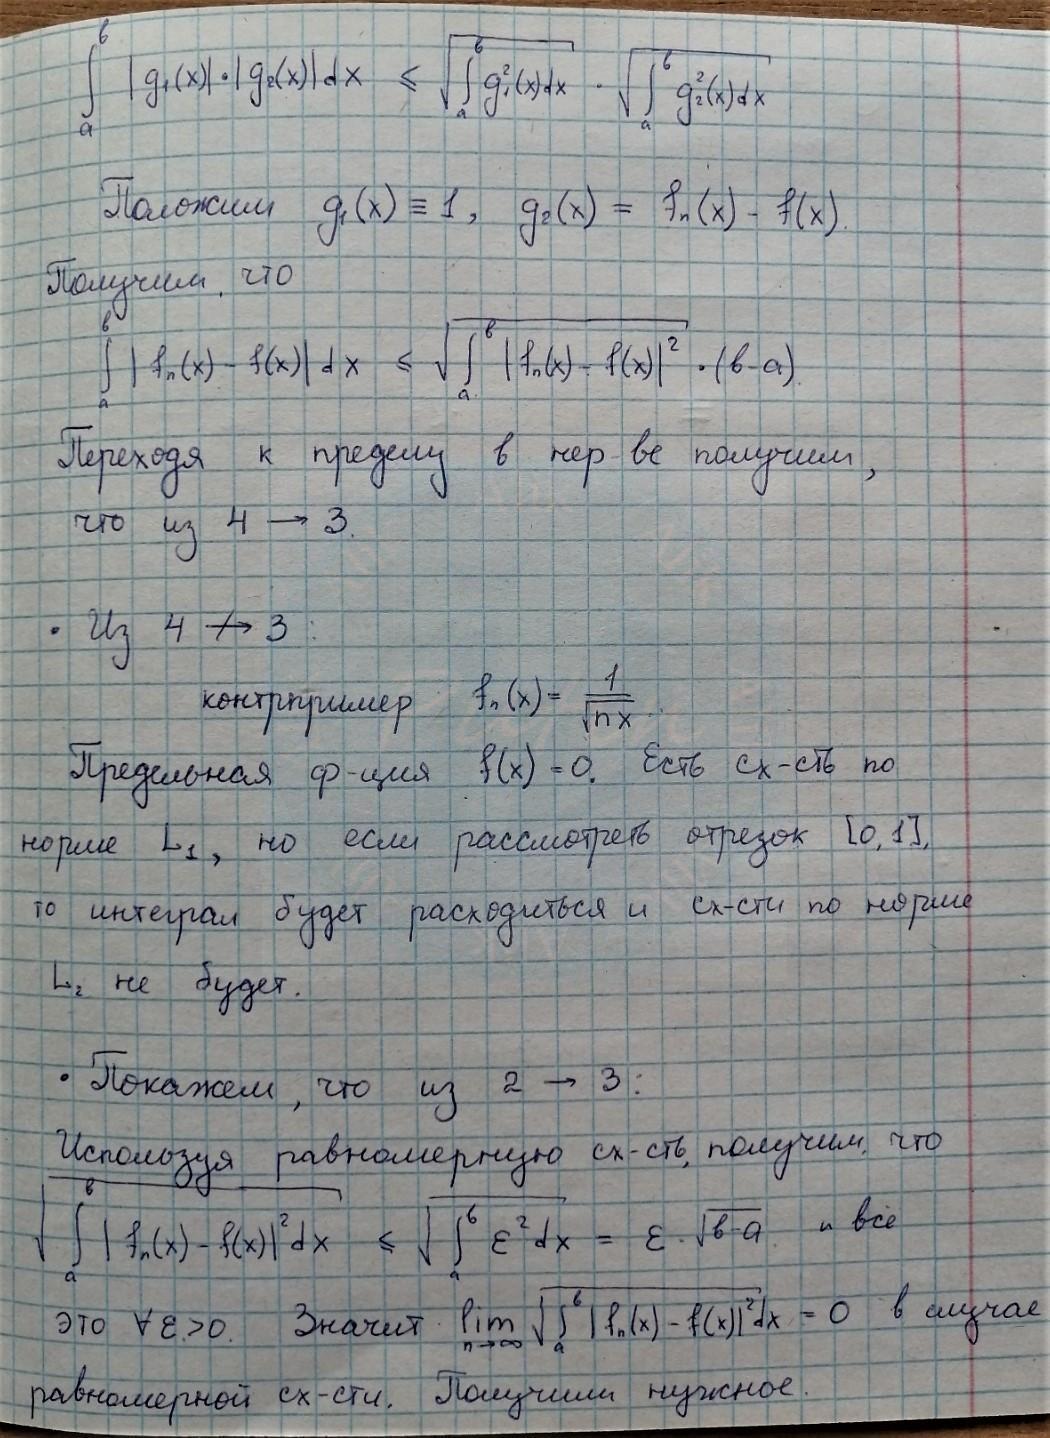 ∫ₐᵇ |g₁(x)|·|g₂(x)|dx ≤ √(∫ₐᵇ g₁²(x)dx) · √(∫ₐᵇ g₂²(x)dx)
Положим g₁(x) ≡ 1, g₂(x) = fₙ(x) - f(x).
Получим, что
∫ₐᵇ |fₙ(x) - f(x)| dx ≤ √(∫ₐᵇ |fₙ(x) - f(x)|²) · (b-a).
Переходя к пределу в нер-ве получим,
что из 4 → 3.
• Из 4 ↛ 3:
контрпример fₙ(x) = 1/√(nx).
Предельная ф-ция f(x) = 0. Есть сх-сть по
норме L₁, но если рассмотреть отрезок [0,1],
то интеграл будет расходиться и сх-сти по норме
L₂ не будет.
• Покажем, что из 2 → 3:
Используя равномерную сх-сть, получим, что
√(∫ₐᵇ |fₙ(x) - f(x)|²dx) ≤ √(∫ₐᵇ ε²dx) = ε·√(b-a) и всё
это ∀ε>0. Значит lim n→∞ √(∫ₐᵇ |fₙ(x) - f(x)|²dx) = 0 в случае
равномерной сх-сти. Получили нужное.